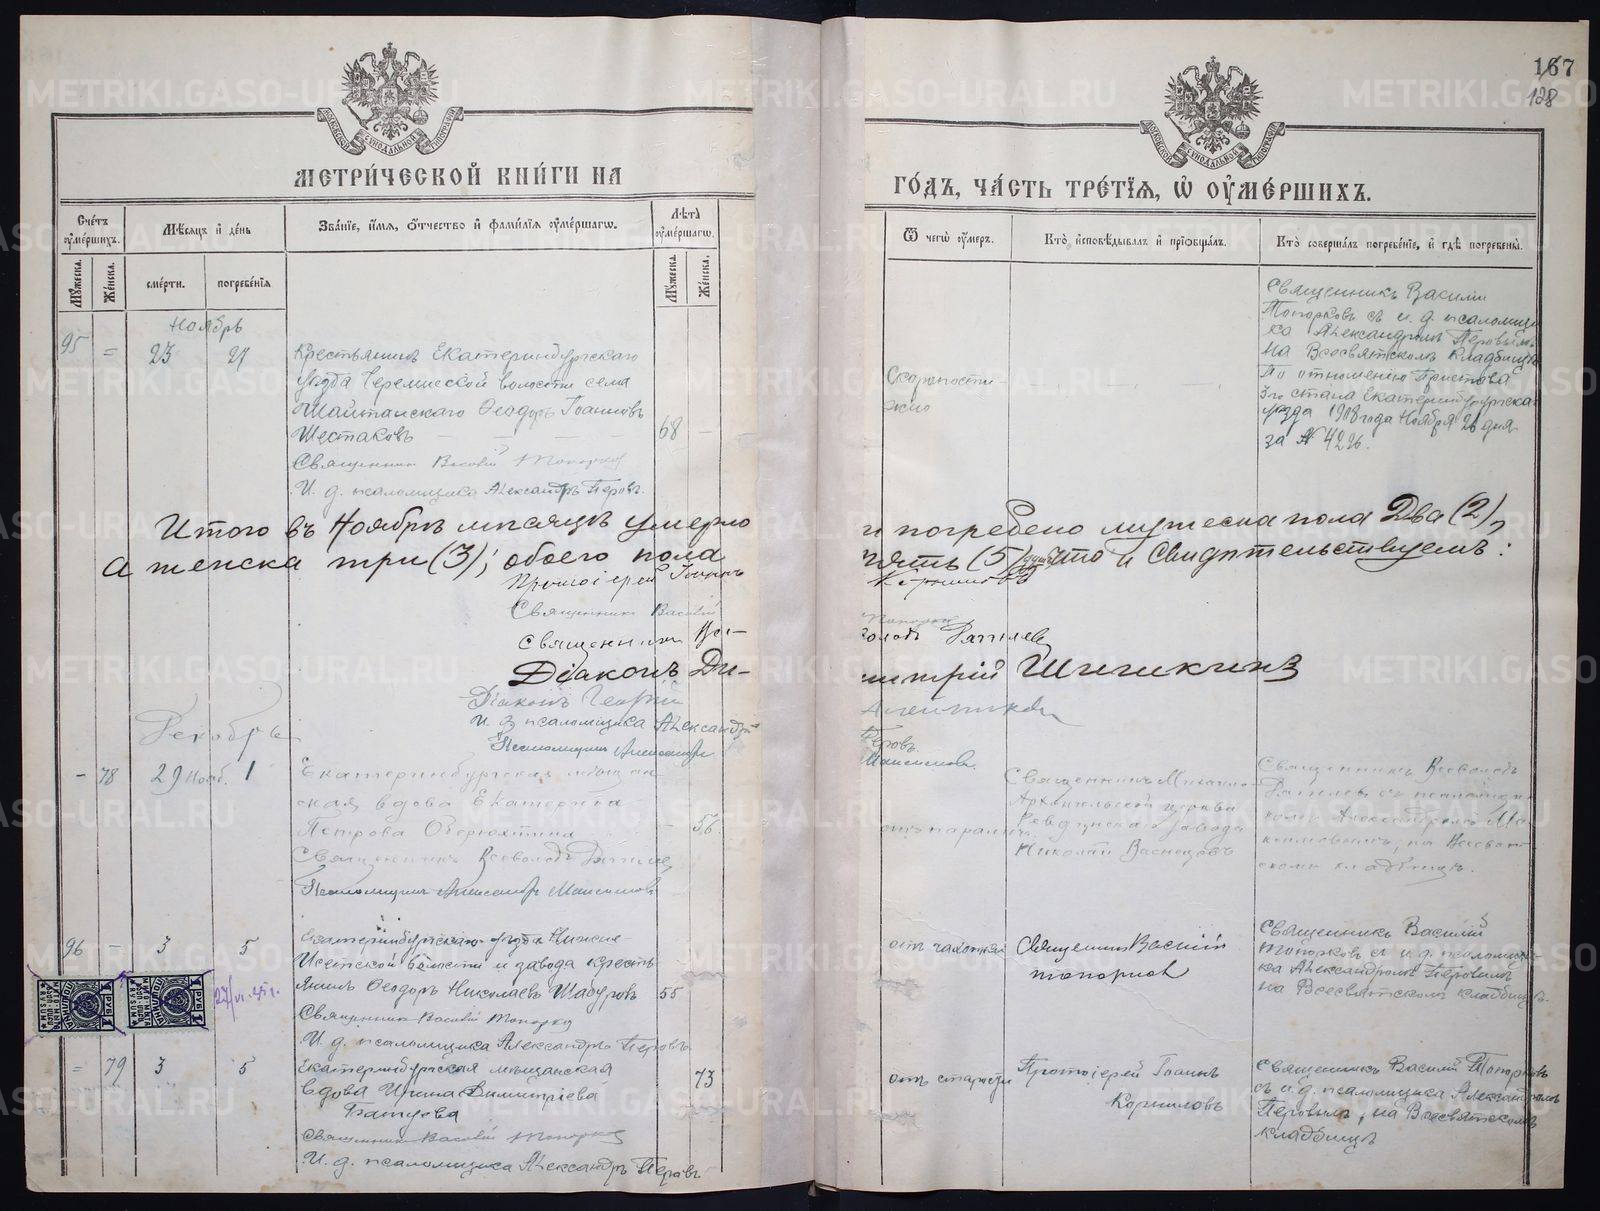 167
128
МЕТРИ́ЧЕСКОЙ КНИ́ГИ НА
ГО́ДЪ, ЧА́СТЬ ТРЕ́ТІѦ, Ѡ ОУ҆МЕ́РШИХЪ.
Сче́тъ оу҆ме́ршихъ.
Мѣ́сяцъ и҆ де́нь
Зва́нїе, и҆́мя, ѻ҆́тчество и҆ фами́лїя оу҆ме́ршагѡ.
Лѣ́та оу҆ме́ршагѡ.
Ѿ чегѡ̀ оу҆́меръ.
Кто̀ и҆сповѣ́дывалъ и҆ прїѡбща́лъ.
Кто̀ соверша́лъ погребе́нїе, и҆ гдѣ̀ погребены̀.
Мꙋ́жеска.
Же́нска.
сме́рти.
погребе́нїя
Мꙋ́жеска.
Же́нска.
Ноябрь
95
=
23
27
Крестьянинъ Екатеринбургскаго
уѣзда Черемисской волости села
Шайтанскаго Ѳеодоръ Іоанновъ
Шестаковъ
68
Священник Василій Топорков
И. д. псаломщика Александръ Перовъ.
Скоропости-
жно
Священникъ Василій
Топорковъ съ и. д. псаломщи
ка Александромъ Перовымъ
на Всесвятскомъ кладбищѣ
По отношенію Пристава
3го стана Екатеринбургска
уѣзда 1908 года Ноября 26 дня
за № 4226.
Итого въ Ноябрѣ мѣсяцѣ умерло и погребено мужеска пола два (2),
а женска три (3); обоего пола пять (5) что и свидѣтельствуемъ:
Протоіерей Іоаннъ Корниловъ
Священник Василій Топорков
Священник Все-володъ
Діаконъ Ди-митрій
Діаконъ Георгій
И. д. псаломщика Александръ Перовъ.
Псаломщик Александръ Максимовъ.
Декабрь
-
78
29 Нояб.
1
Екатеринбургская мѣщан-
ская вдова Екатерина
Петрова
56
Священникъ Всеволодъ
Псаломщикъ Александръ Максимовъ
отъ паралич
Священникъ Михаило-
Архангельской церкви
Ревдинскаго завода
Николай Васнецовъ
Священникъ Всеволодъ
съ псаломщи-
комъ Александромъ Ма-
ксимовымъ, на Всесвят-
скомъ кладбищѣ.
96
-
3
5
Екатеринбургскаго уѣзда Нижне-
Исетской волости и завода кресть-
янинъ Ѳеодоръ Николаевъ Шабуровъ
55
Священник Василій Топорков
И. д. псаломщика Александръ Перовъ.
отъ чахотки
Священник Василій
Топорков
Священникъ Василій
Топорковъ съ и. д. псаломщи-
ка Александромъ Перовымъ
на Всесвятскомъ кладбищѣ.
=
79
3
5
Екатеринбургская мѣщанская
вдова Ирина Димитріева
73
Священник Василій Топорков
И. д. псаломщика Александръ Перовъ
отъ старости
Протоіерей Іоаннъ
Корниловъ
Священникъ Василій Топорковъ
съ и. д. псаломщика Александромъ
Перовымъ, на Всесвятскомъ
кладбищѣ
METRIKI.GASO-URAL.RU